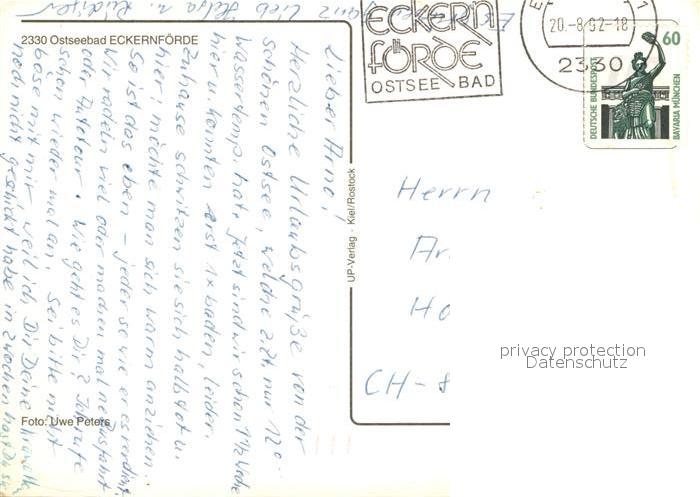 2330 Ostseebad ECKERNFÖRDE
Lieber Arno!
Herzliche Urlaubsgrüße von der
schönen Ostsee, welche z.Zt. nur 12°
Wassertemp. hat. Jetzt sind wir schon 1 1/2 Woche
hier u. konnten erst 1x baden, leider.
Zuhause schwitzen sie sich halb tot u.
hier möchte man sich warm anziehen.
So ist das eben – jeder so wie er es verdient.
Wir radeln viel oder machen mal ne Ausfahrt
oder Autotour. Wie geht es Dir? Ich rufe
schon wieder mal an. Sei bitte nicht
böse mit mir weil ich Dir Deine
noch nicht geschickt habe in 2 Wochen hast Du sie
ganz lieb Helga u.
Foto: Uwe Peters
UP-Verlag - Kiel/Rostock
ECKERN
FÖRDE
OSTSEE BAD
20.-8.92-18
2330
60
DEUTSCHE BUNDESPOST
BAVARIA MÜNCHEN
Herrn
Ar
Ho
CH-8
privacy protection
Datenschutz